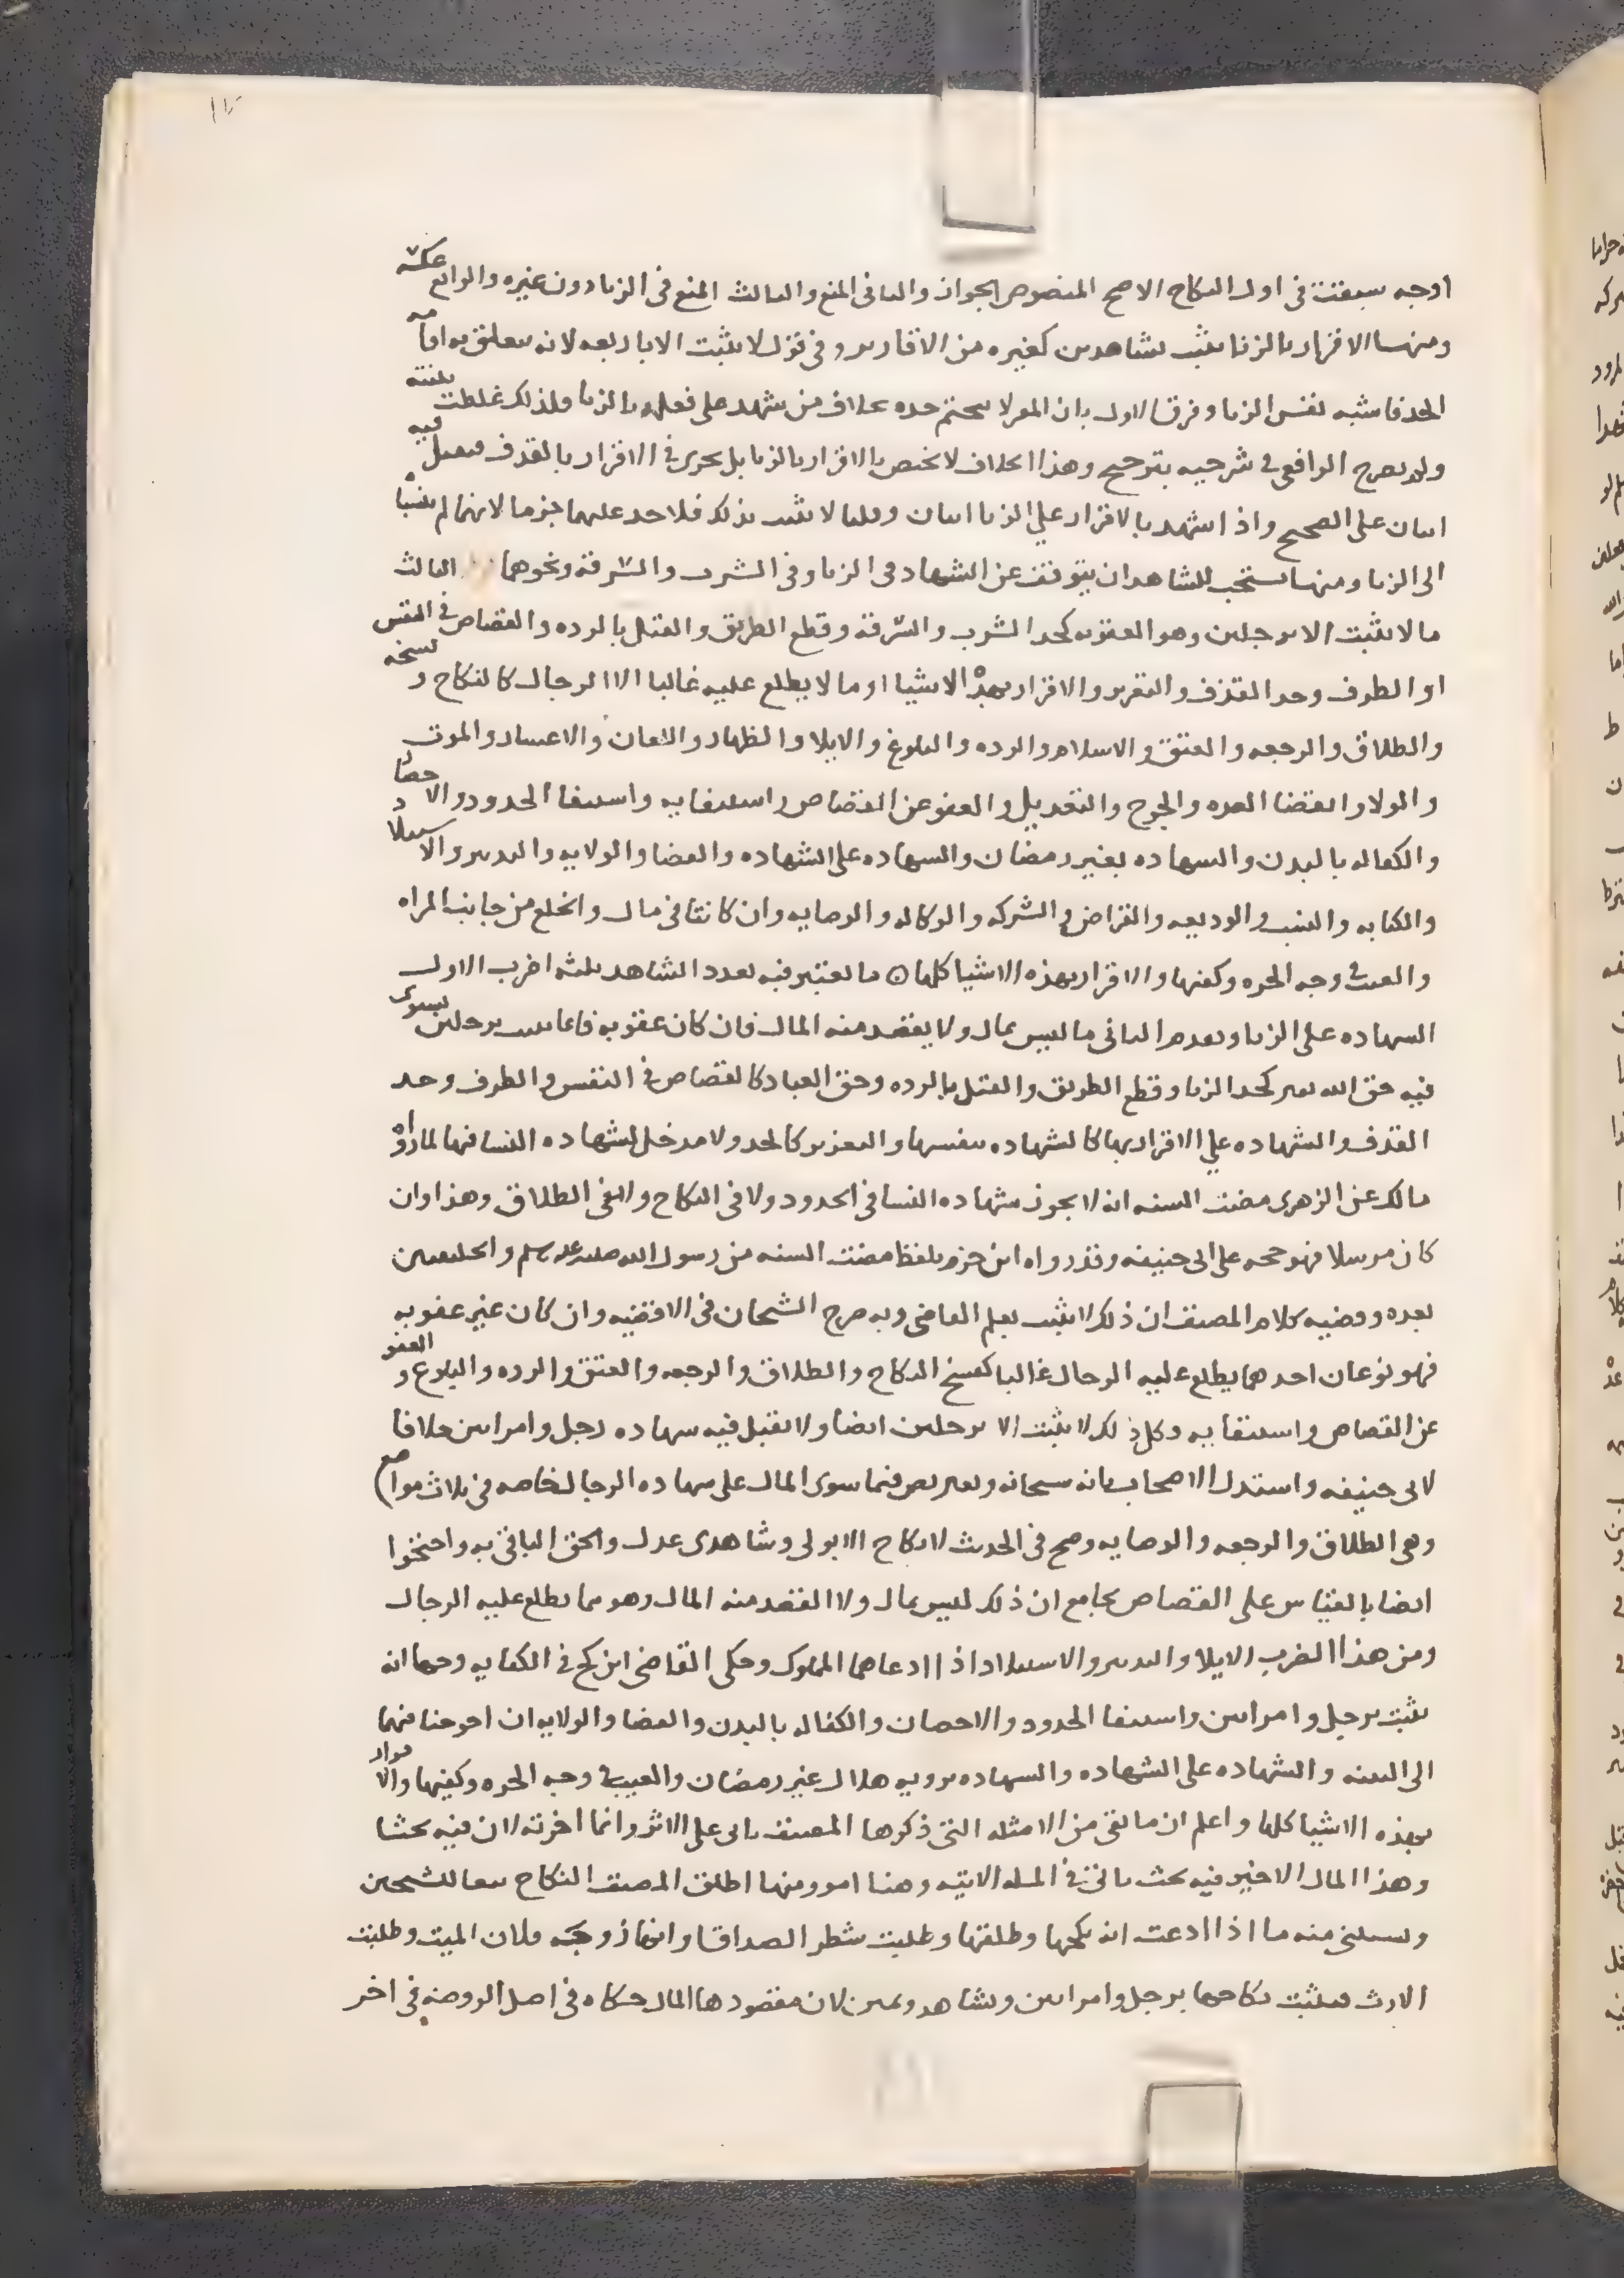 اوجه سبقت فى اول النكاح الاصح المنصوص الجواز والثانى المنع والثالث المنع فى الزنا دون غيره والرابع عكسه
ومنها الاقرار بالزنا يثبت بشاهدين كغيره من الاقارير وفى قول لا يثبت الا باربعه لانه يتعلق به اقامه
الحد فاشبه نفس الزنا وفرق الاول بان المقر لا يتحتم حده بخلاف من شهد على فعله بالزنا ولذلك غلظت بينته
ولم يصرح الرافعى فى شرحيه بترجيح وهذا الخلاف لا يختص بالاقرار بالزنا بل يجرى فى الاقرار بالقذف فيقبل فيه
اثنان على الصحيح واذا شهد بالاقرار على الزنا اثنان وقلنا لا يثبت بذلك فلا حد عليهما جزما لانهما لم ينسباه
الى الزنا ومنها يستحب للشاهد ان يتوقف عن الشهاده فى الزنا وفى الشرب والسرقه ونحوهما الثالث
ما لا يثبت الا برجلين وهو العقوبه كحد الشرب والسرقه وقطع الطريق والقتل بالرده والقصاص فى النفس
او الطرف وحد القذف والتعزير والاقرار بهذه الاشيا او ما لا يطلع عليه غالبا الا الرجال كالنكاح وفسخه
والطلاق والرجعه والعتق والاسلام والرده والبلوغ والايلا والظهار واللعان والاعسار والموت
والولا وانقضا العده والجرح والتعديل والعفو عن القصاص واستيفايه واستيفا الحدود والاحصان
والكفاله بالبدن والشهاده بغير رمضان والشهاده على الشهاده والقضا والولايه والتدبير والاستيلاد
والكتابه والنسب والوديعه والقراض والشركه والوكاله والوصايه وان كانتا فى مال والخلع من جانب المراه
والعيب فى وجه الحره وكفيها والاقرار بهذه الاشيا كلها ما يعتبر فيه تعدد الشاهد ثلثه اضرب الاول
الشهاده على الزنا وتقدم الثانى ما ليس بمال ولا يقصد منه المال فان كان عقوبه فانما يثبت برجلين يستوى
فيه حق الله تعلى كحد الزنا وقطع الطريق والقتل بالرده وحق العباد كالقصاص فى النفس والطرف وحد
القذف والشهاده على الاقرار بها كالشهاده بنفسها والتعزير كالحد ولا مدخل لشهاده النسا فيها لما رواه
مالك عن الزهرى مضت السنه انه لا يجوز شهاده النسا فى الحدود ولا فى النكاح ولا فى الطلاق وهذا وان
كان مرسلا فهو حجه على ابى حنيفه وقد رواه ابن حزم بلفظ مضت السنه من رسول الله صلى الله عليه وسلم والخليفتين
بعده وقضيه كلام المصنف ان ذلك لا يثبت بعلم القاضى وبه صرح الشيخان فى الاقضيه وان كان غير عقوبه
فهو نوعان احدهما يطلع عليه الرجال غالبا كفسخ النكاح والطلاق والرجعه والعتق والرده والبلوغ والعفو
عن القصاص واستيفايه وكل ذلك لا يثبت الا برجلين ايضا ولا تقبل فيه شهاده رجل وامراتين خلافا
لابى حنيفه واستدل الاصحاب بانه سبحانه وتعلى نص فيما سوى المال على شهاده الرجال خاصه فى ثلاث مواضع
وهى الطلاق والرجعه والوصايه وصح فى الحديث لا نكاح الا بولى وشاهدى عدل والحق الباقى به واحتجوا
ايضا بالقياس على القصاص بجامع ان ذلك ليس بمال ولا القصد منه المال وهو مما يطلع عليه الرجال
ومن هذا الضرب الايلا والتدبير والاستيلاد اذا ادعاهما المملوك وحكى القاضى ابن كج فى الكتابه وجها انه
يثبت برجل وامراتين واستيفا الحدود والاحصان والكفاله بالبدن والقضا والولايه ان احوجنا فيهما
الى البينه والشهاده على الشهاده والشهاده برويه هلال غير رمضان والعيب فى وجه الحره وكفيها والاقرار
بهذه الاشيا كلها واعلم ان ما بقى من الامثله التى ذكرها المصنف ياتى على الاثر وانما اخرته لان فيه بحثا
وهذا المثال الاخير فيه بحث ياتى فى المسله الاتيه وهنا امور منها اطلق المصنف النكاح تبعا للشيخين
ويستثنى منه ما اذا ادعت انه نكحها وطلقها وطلبت شطر الصداق او انها زوجه فلان الميت وطلبت
الارث فيثبت نكاحها برجل وامراتين وبشاهد ويمين لان مقصودها المال حكاه فى اصل الروضه فى اخر